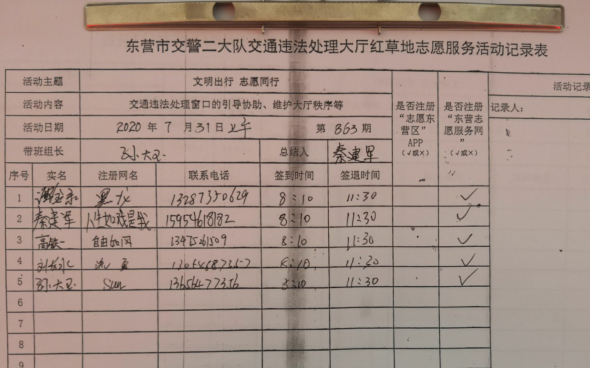 东营市交警二大队交通违法处理大厅红草地志愿服务活动记录表
活动主题 文明出行 志愿同行 活动记录
活动内容 交通违法处理窗口的引导协助、维护大厅秩序等 是否注册“志愿东营区”APP（√或×） 是否注册“东营志愿服务网”（√或×） 记录人：
活动日期 2020 年 7 月 31 日上午 第 863 期
带班组长 孙大卫 总结人 秦建军
序号 实名 注册网名 联系电话 签到时间 签退时间
1 8:10 11:30 √
2 秦建军 15954618182 8:10 11:30 √
3 高铁一 自由如风 8:10 11:30 √
4 8:10 11:30 √
5 孙大卫 Sun 8:10 11:30 √
6
7
8
9